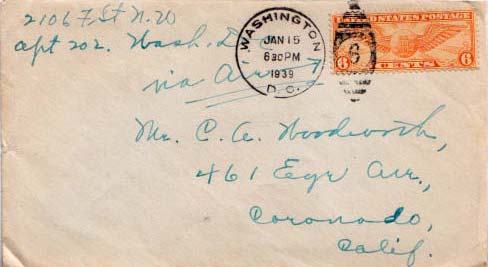 2106 F St N.W
apt 202. Wash. D.C.
via Air
WASHINGTON
JAN 15
6 30 PM
1939
D.C.
6
UNITED STATES POSTAGE
6 CENTS 6
Mr. C. A. Woodworth,
461 Ave.,
Coronado,
Calif.